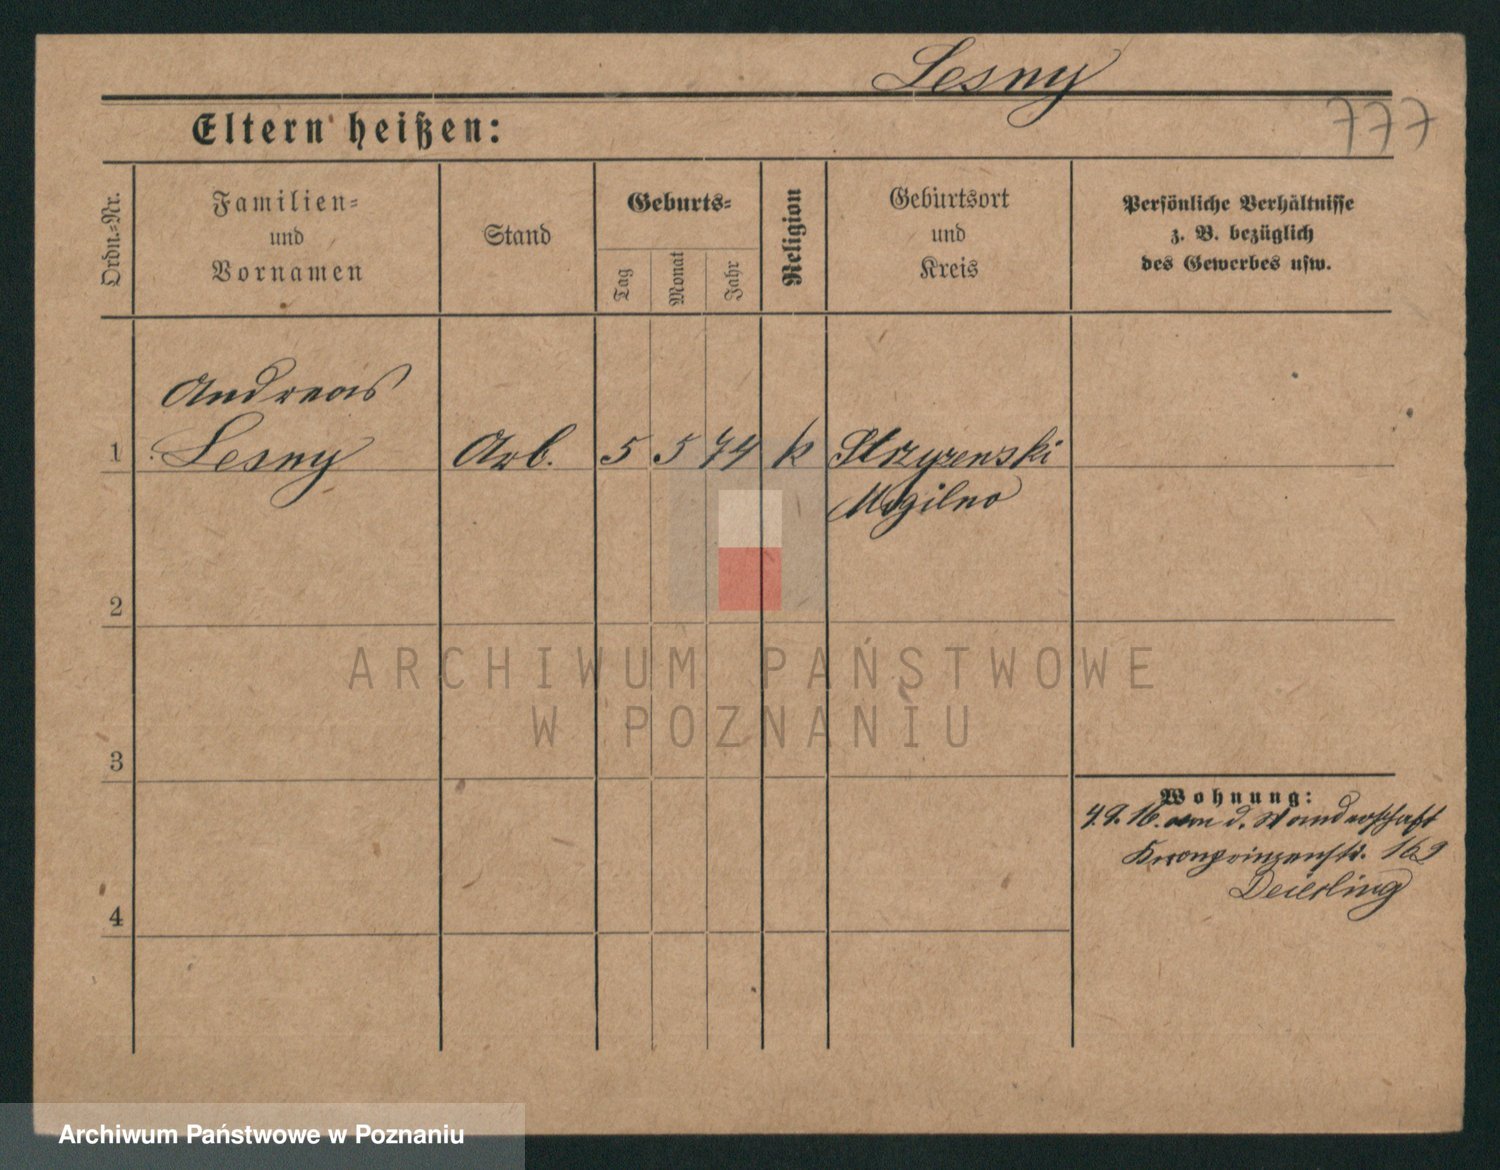 Lesny
777
Eltern heißen:
Ordn.-Nr.
Familien-
und
Vornamen
Stand
Geburts-
Tag
Monat
Jahr
Religion
Geburtsort
und
Kreis
Persönliche Verhältnisse
z. B. bezüglich
des Gewerbes usw.
Andreas
1 Lesny Arb. 5 5 74 k Strzyzewski
Mogilno
2
ARCHIWUM PAŃSTWOWE
W POZNANIU
3
Wohnung:
4.9.16. von d. Wanderschaft
Kronprinzenstr. 169
4
Archiwum Państwowe w Poznaniu